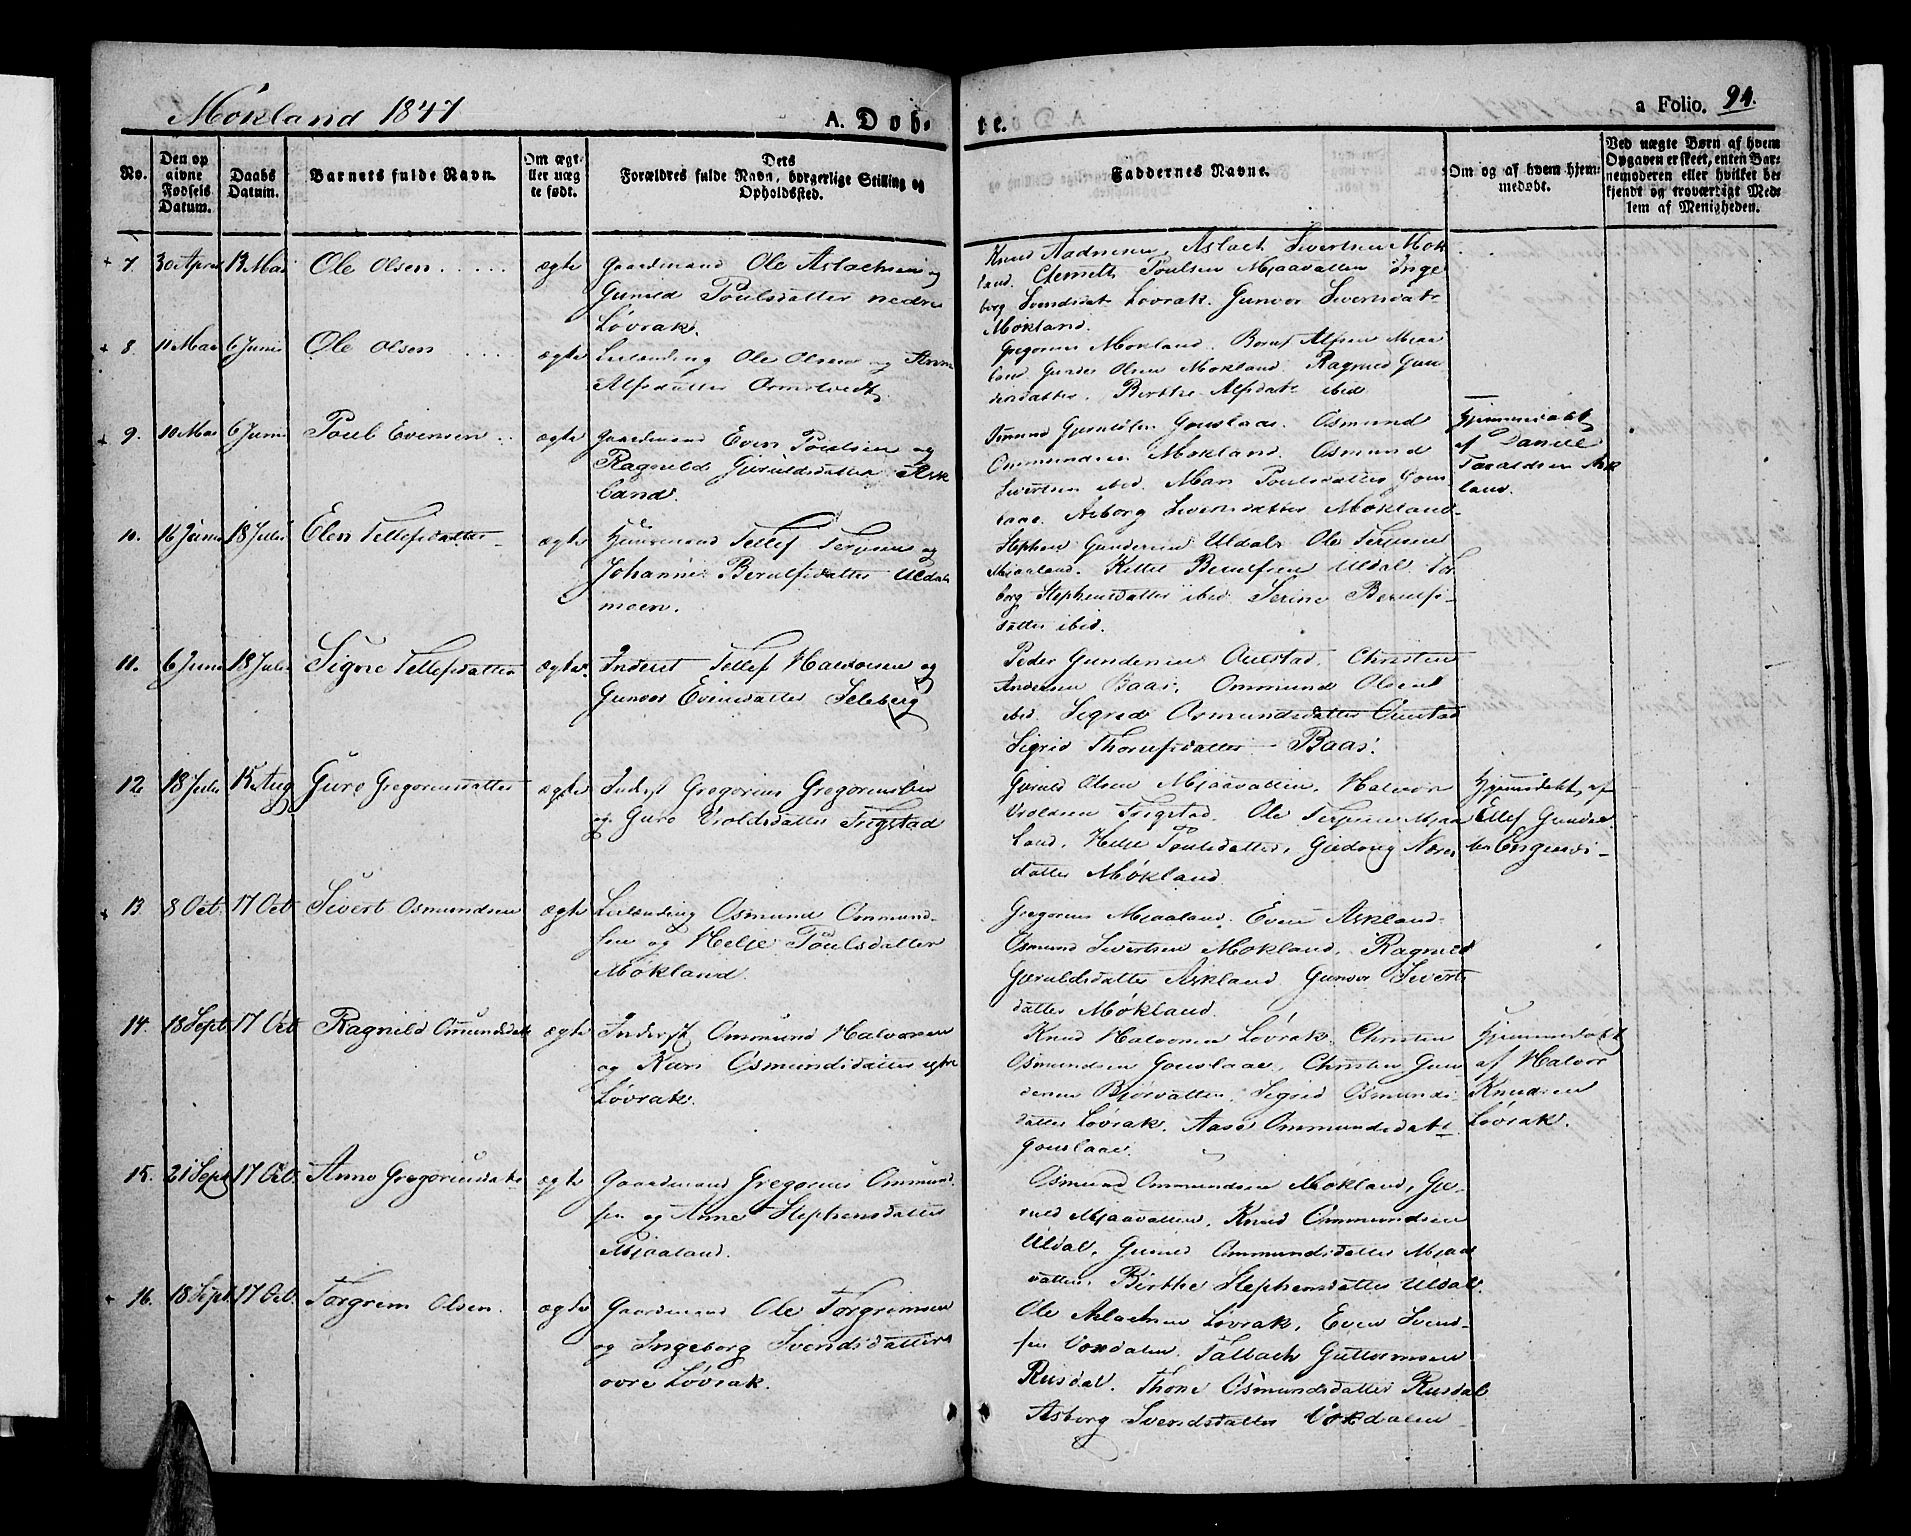 Mökland 1847
A. Döb-
te.
a Folio. 94.
No.
Den op
givne
Fødsels
Datum.
Daabs
Datum.
Barnets fulde Navn.
Om ægt-
eller uæg-
te født.
Dets
Forældres fulde Navn, borgerlige Stilling og
Opholdssted.
Faddernes Navne.
Om og af hvem hjem-
medøbt.
Ved uægte Børn af hvem
Opgaven er skeet, enten Bar-
nemoderen eller hvilket be-
kjendt og troværdigt Med-
lem af Menigheden.
7. 30 April 13 Mai Ole Olsen ægte Gaardmand Ole Aslachsen og
Gunild Poulsdatter nedre
Lövrak.
Knud Aadnesen, Aslach Sivertsen Mök
land. Clemeth Poulsen Mjaavatten Inge
borg Svendsdat Lövrak. Gunvor Sivertsdatr
Mökland.
8. 11 Mai 6 Juni Ole Olsen ægte Leilænding Ole Olsen og Anne
Alfsdatter
Gregorius Mökland. Alfsen Mjaa
land Gunder Olsen Mökland. Ragnild Gun
dersdatter. Birthe Alfsdatr ibid
9. 10 Mai 6 Juni Poul Evensen ægte Gaardmand Even Poulsen og
Ragnild Gjeruldsdatter Ask
land.
Gouslaae. Osmund
Ommundsen Mökland. Osmund
Sivertsen ibid. Mari Poulsdatter Gous
laae. Asborg Sivertsdatter Mökland
Hjemmedöbt
af Daniel
Taraldsen Ask
land.
10. 16 Juni 18 Juli Elen Tellefsdatter ægte Huusmand Tellef Terjesen og
Johanne Berulfsdatter Uldals
moen.
Stephen Gundersen Uldal. Ole Terjesen
Mjaaland. Kittel Berulfsen Uldal. Tor
borg Stephensdatter ibid. Serine Berulfs-
datter ibid.
11. 6 Juni 18 Juli Signe Tellefsdatter ægte Inderst Tellef Halvorsen og
Gunvor Evensdatter Seleberg
Peder Gundersen Austad. Christen
Andersen Baas. Ommund Olsen
ibid. Sigrid Osmundsdatter Austad
Sigrid Thorulfsdatter Baas.
12. 18 Juli 15 Aug Guro Gregoriusdatter ægte Inderst Gregorius Gregoriussen
og Guro Vroldsdatter Trigstad
Gjeruld Olsen Mjaavatten, Halvor
Vroldsen Trigstad. Ole Terjesen Mjaa
land. Helje Poulsdatter,
datter Mökland.
Hjemmedöbt af
Ellef Gunder
sen
13. 8 Oct. 17 Oct Sivert Osmundsen ægte Leilænding Osmund Ommund-
sen og Helje Poulsdatter
Mökland
Gregorius Mjaaland. Even Askland.
Osmund Sivertsen Mökland. Ragnild
Gjeruldsdatter Askland Gunvor Siverts
datter Mökland.
14. 18 Sept. 17 Oct Ragnild Omundsdatt ægte Inderst Ommund Halvorsen
og Kari Osmundsdatter
Lövrak.
Knud Halvorsen Lövrak. Christen
Osmundsen Gouslaae, Christen Gun
dersen Bjorvatten. Sigrid Osmunds-
datter Lövrak. Aase Ommundsdatr
Gouslaae.
Hjemmedöbt
af Halvor
Knudsen
Lövrak.
15. 21 Sept 17 Oct. Anne Gregoriusdatr ægte Gaardmand Gregorius Ommund
sen og Anne Stephensdatter
Mjaaland.
Osmund Ommundsen Mökland, Gje-
ruld Mjaavatten. Knud Ommundsen
Uldal, Gunild Ommundsdatter Mjaa
vatten. Birthe Stephensdatter Uldal.
16. 18 Sept. 17 Oct. Torgrim Olsen. ægte Gaardmand Ole Torgrimsen
og Ingeborg Svendsdatter
övre Lövrak.
Ole Aslachsen Lövrak, Even Svend-
sen Vordalen. Salbach Guttormsen
Rusdal. Thone Osmundsdatter Rusdal
Asborg Svendsdatter Vordalen